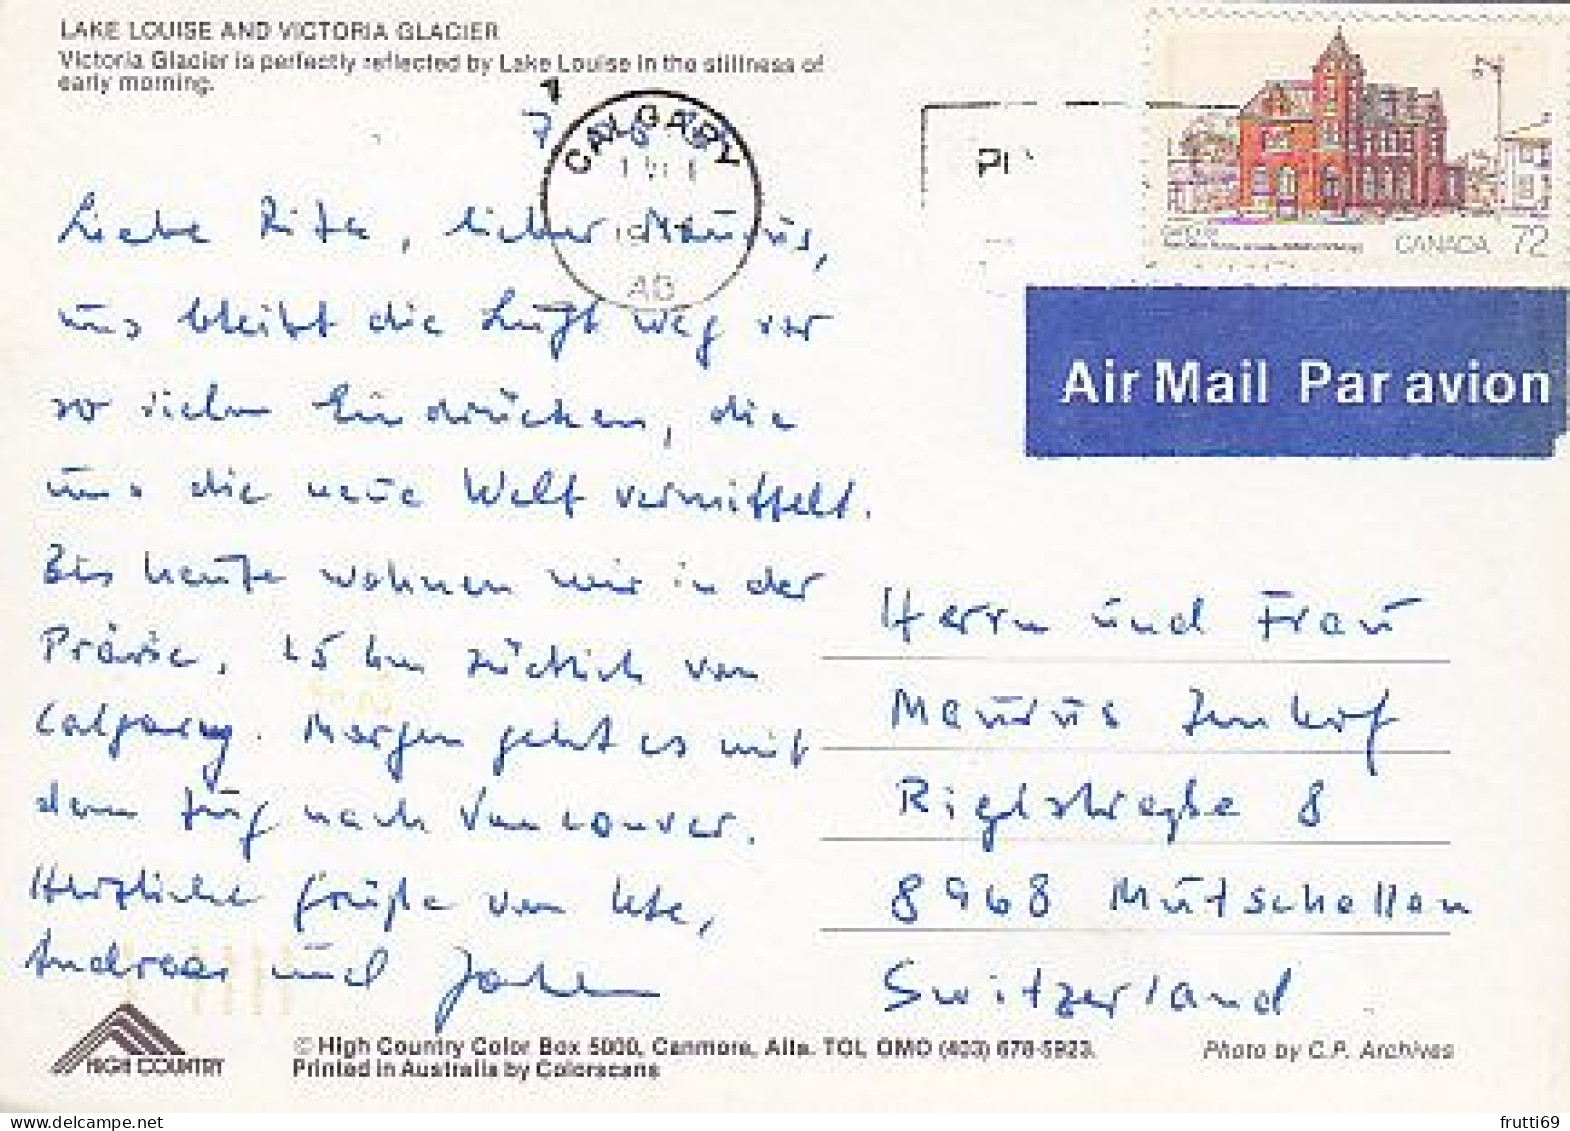 LAKE LOUISE AND VICTORIA GLACIER
Victoria Glacier is perfectly reflected by Lake Louise in the stillness of
early morning.
CALGARY
AB
CANADA 72
Air Mail Par avion
Liebe Rita, lieber Maurus,
uns bleibt die Luft weg vor
so vielen Eindrücken, die
uns die neue Welt vermittelt.
Bis heute wohnen wir in der
Prärie, 45 km südlich von
Calgary. Morgen geht es mit
dem Zug nach Vancouver.
Herzliche Grüße von Ute,
Andreas und
Herrn und Frau
Maurus Imhof
8
8968 Mutschellen
Switzerland
HIGH COUNTRY
© High Country Color Box 5000, Canmore, Alta. TOL OMO (403) 678-5923.
Printed in Australia by Colorscans
Photo by C.P. Archives
frutti69